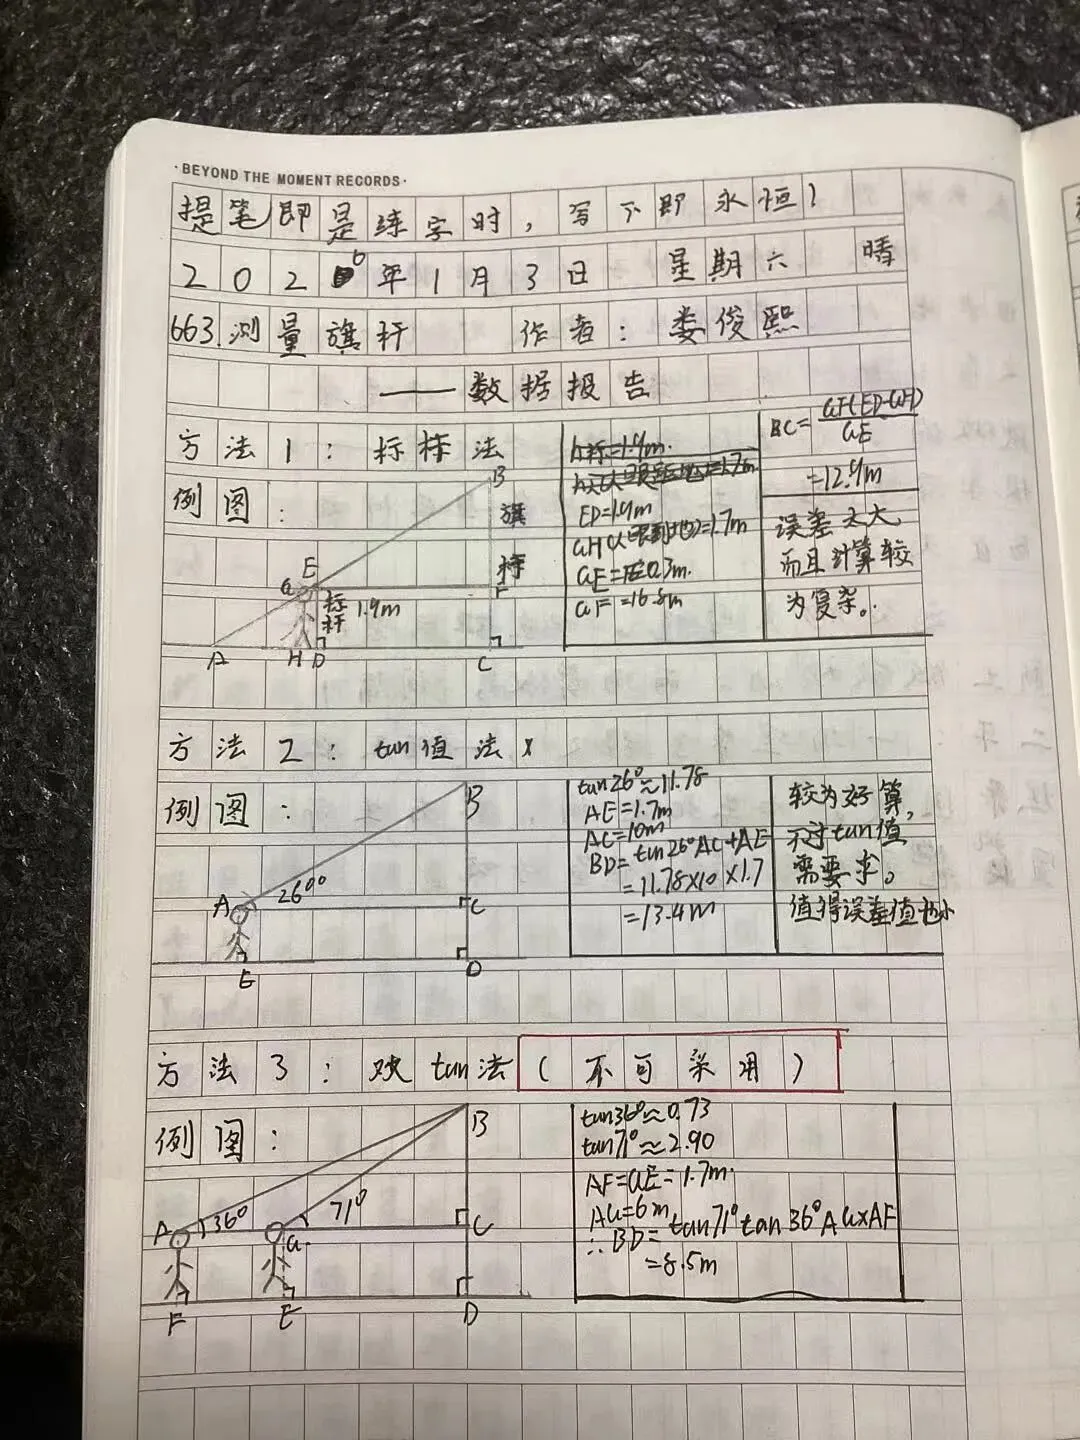 ·BEYOND THE MOMENT RECORDS·
提笔即是练字时，写下即永恒！
2026年1月3日 星期六 晴
663.测量旗杆 作者：娄俊熙
——数据报告
方法1：标杆法
例图：
B
旗
杆
E
G
F
标
杆
1.9m
A H D C
ED=1.9m
GH(人眼到地)=1.7m
GE=0.3m
GF=16.8m
BC=GF(ED-GH)/GE
=12.9m
误差太大，
而且计算较
为复杂。
方法2：tan值法
例图：
B
A 26° C
E D
tan26°≈11.78
AE=1.7m
AC=10m
BD=tan26°AC+AE
=11.78×10×1.7
=13.4m
较为好算，
不过tan值
需要求。
值得误差值也小
方法3：双tan法（不可采用）
例图：
B
A 36° G 71° C
F E D
tan36°≈0.73
tan71°≈2.90
AF=GE=1.7m
AG=6m
∴BD=tan71°tan36°AG×AF
=8.5m